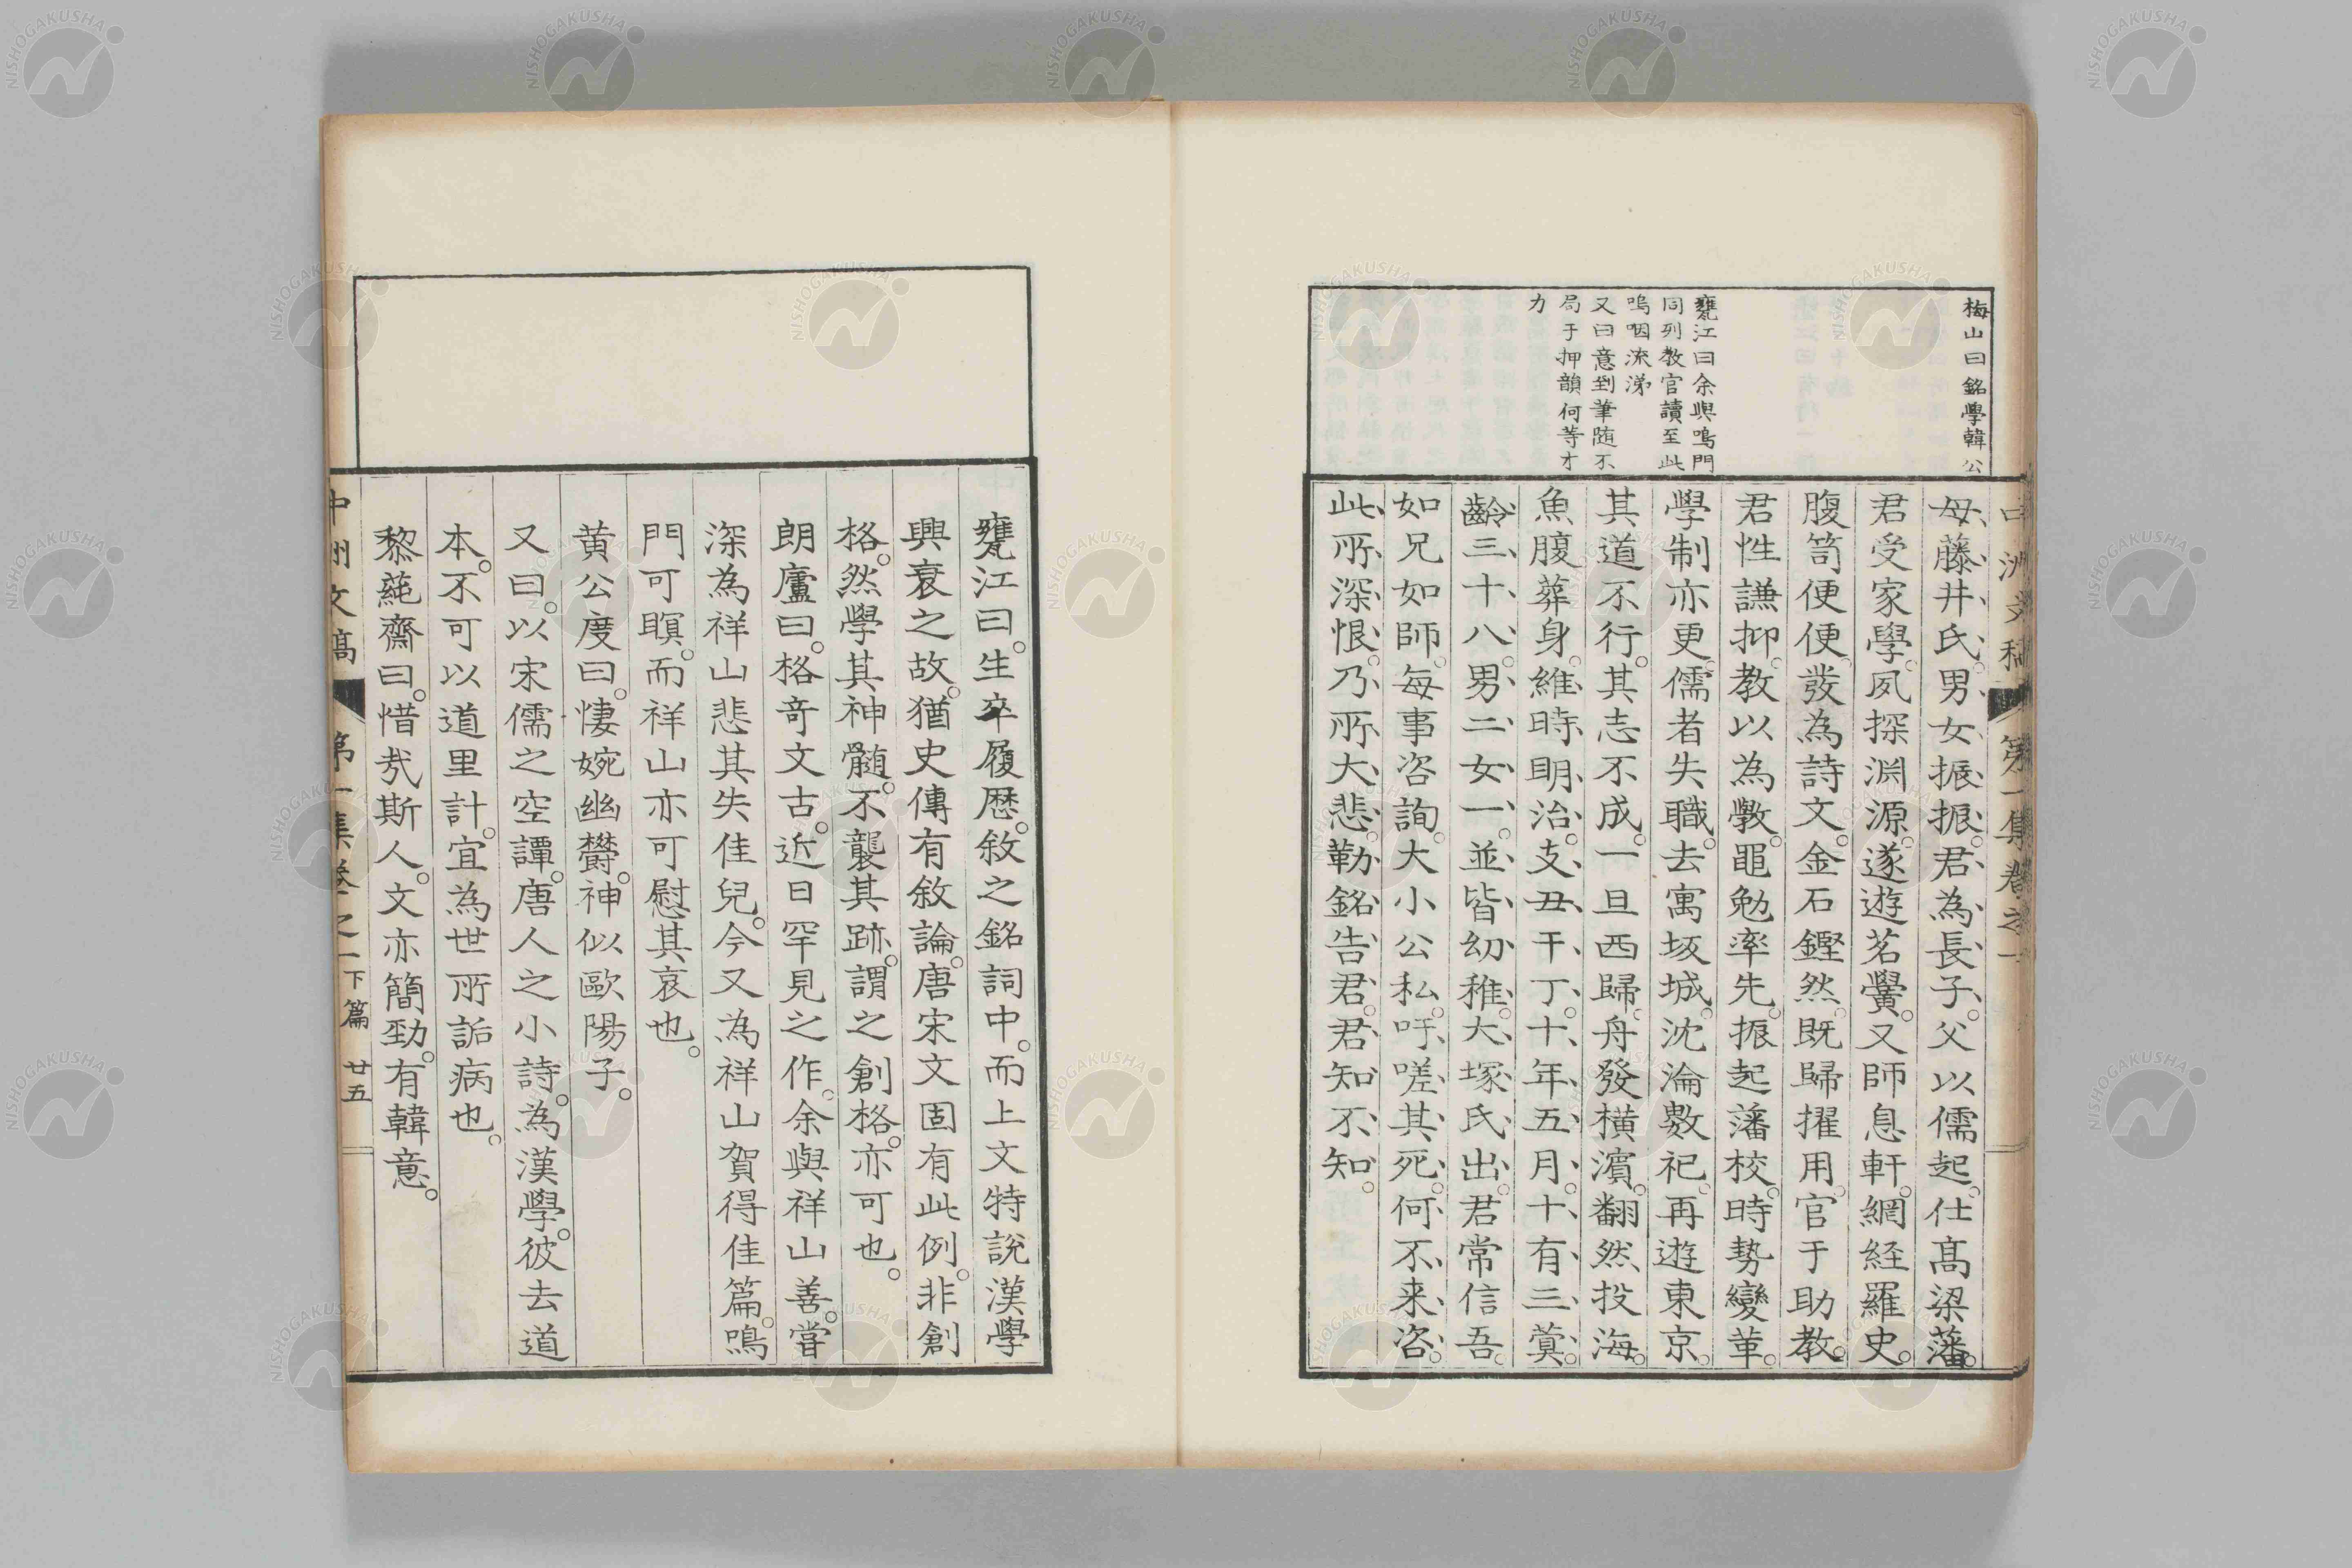 梅山曰銘學韓公
甕江曰余與鳴門
同列教官讀至此
嗚咽流涕
又曰意到筆随不
局于押韻何等才
力
母藤井氏男女振振君為長子父以儒起仕髙梁藩
君受家學夙探渊源遂遊茗黌又師息軒網経羅史
腹笥便便發為詩文金石鏗然既歸擢用官于助教
君性謙抑教以為斆黽勉率先振起藩校時勢變革
學制亦更儒者失職去寓坂城沈淪數祀再遊東京
其道不行其志不成一旦西歸舟發横濱翻然投海
魚腹葬身維時明治支丑干丁十年五月十有三蓂
齡三十八男二女一並皆幼稚大塚氏出君常信吾
如兄如師每事咨詢大小公私吁嗟其死何不来咨
此所深恨乃所大悲勒銘告君君知不知
甕江曰生卒履歴敘之銘詞中而上文特說漢學
興衰之故猶史傳有敘論唐宋文固有此例非創
格然學其神髓不襲其跡謂之創格亦可也
朗廬曰格奇文古近日罕見之作余與祥山善嘗
深為祥山悲其失佳兒今又為祥山賀得佳篇鳴
門可瞑而祥山亦可慰其哀也
黄公度曰悽婉幽欝神似歐陽子
又曰以宋儒之空譚唐人之小詩為漢學彼去道
本不可以道里計宜為世所詬病也
黎蒓齋曰惜哉斯人文亦簡勁有韓意
中洲文稿 第一集卷之一下篇 廿五
NISHOGAKUSHA